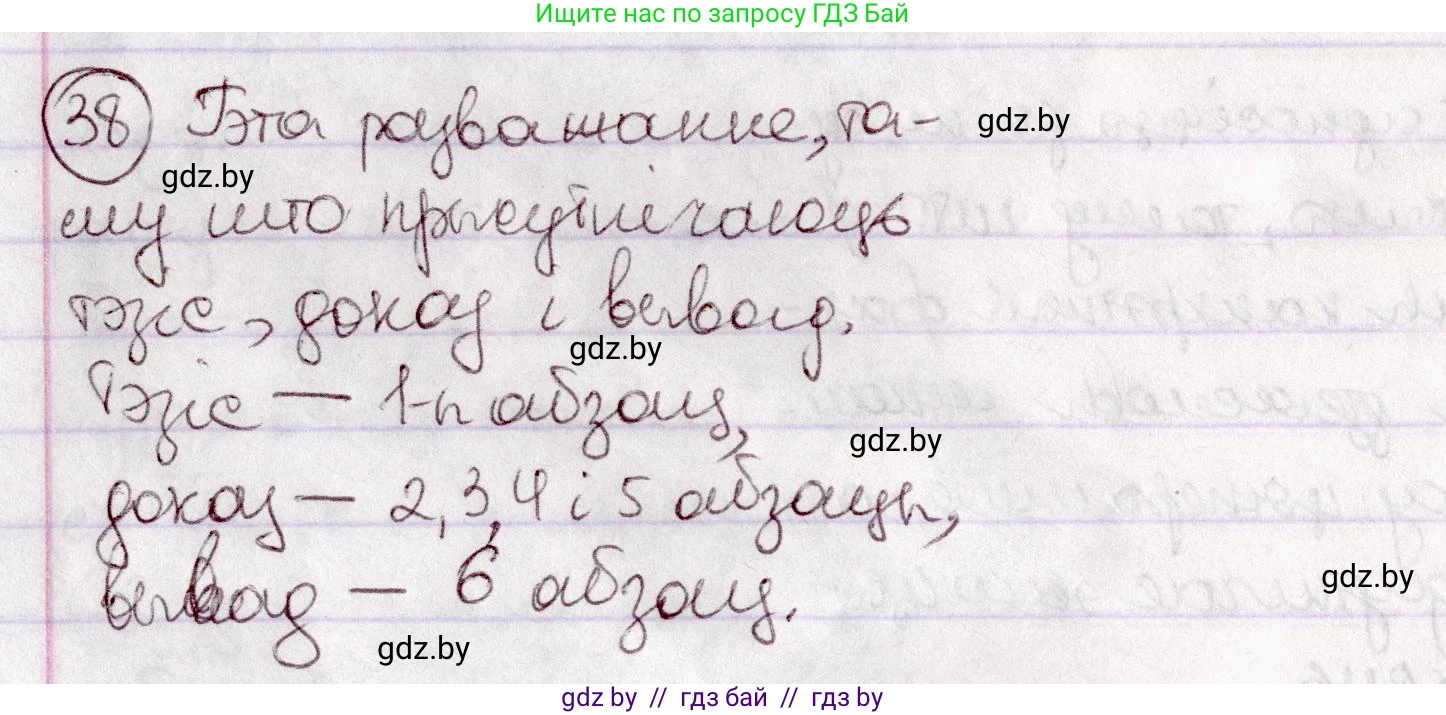 Ищите нас по запросу ГДЗ Бай
38 Гэта разважанне, та- gdz.by
gdz.by
му што прысутнічаюць
тэзіс, доказ і вывад.
gdz.by
Тэзіс — 1-ы абзац,
gdz.by
доказ — 2, 3, 4 і 5 абзацы,
вывад — 6 абзац.
gdz.by
gdz.by
gdz.by // гдз бай // гдз by